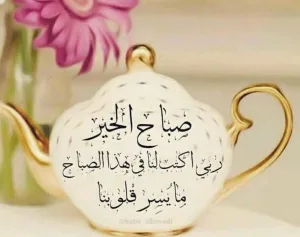 صباح الخير
ربي اكتب لنا في هذا الصباح
ما يسر قلوبنا